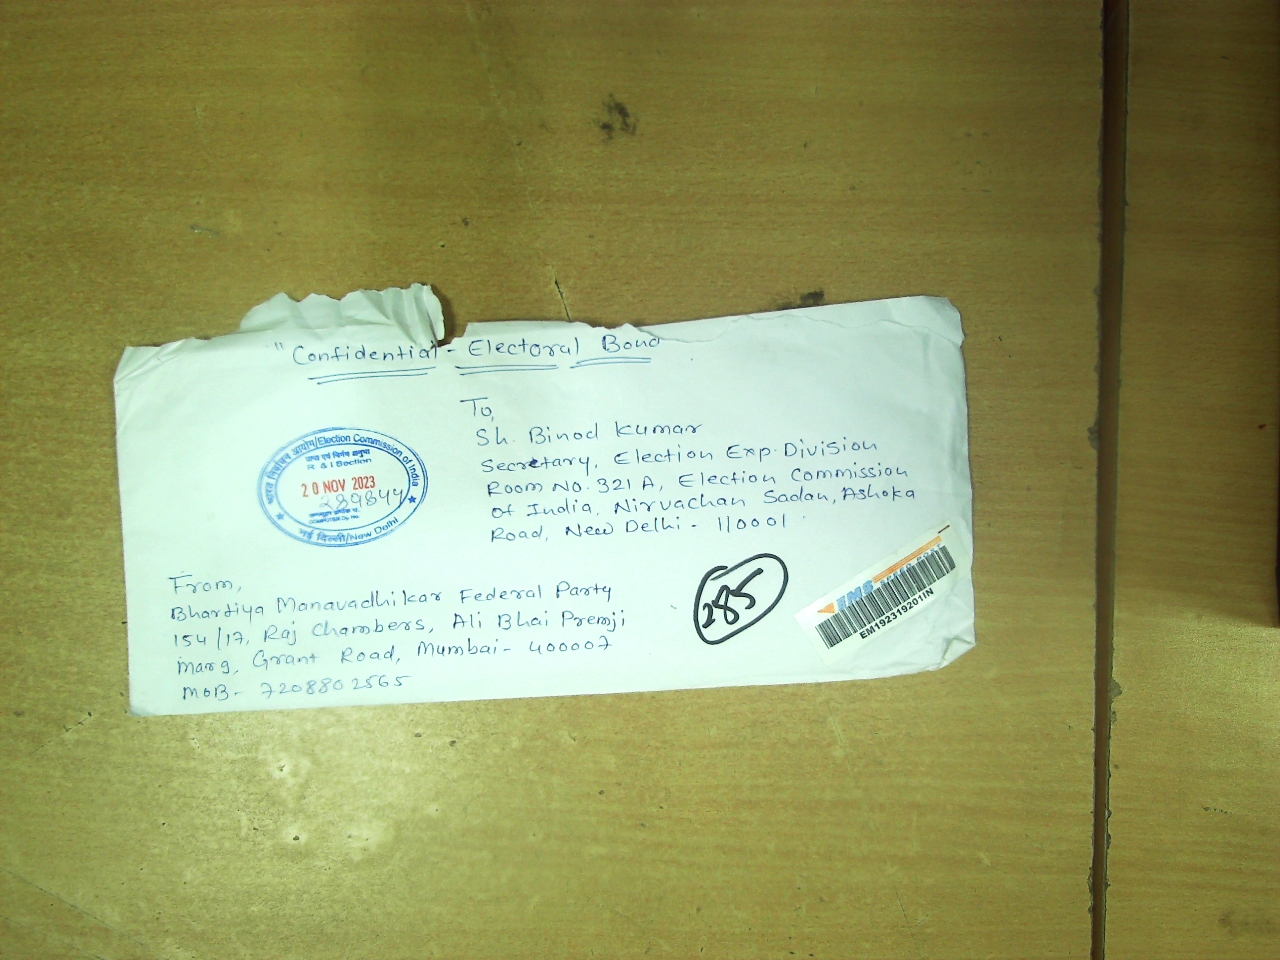 "Confidential - Electoral Bond
To,
Sh. Binod Kumar
Secretary, Election Exp. Division
Room No. 321 A, Election Commission
of India, Nirvachan Sadan, Ashoka
Road, New Delhi - 110001
भारत निर्वाचन आयोग/Election Commission of India
R & I Section
20 NOV 2023
289844
नई दिल्ली/New Delhi
From,
Bhartiya Manavadhikar Federal Party
154/17, Raj Chambers, Ali Bhai Premji
Marg, Grant Road, Mumbai - 400007
MOB - 7208802565
285
EMS SPEED POST
EM192319201IN